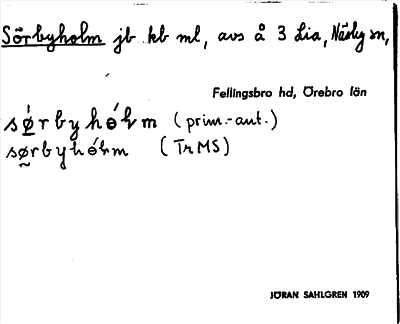 Sörbyholm jb kb ml, avs å 3 Lia, Näsby sn,
Fellingsbro hd, Örebro län
sørbyhólm (prim.-ant.)
sørbyhólm (TrMS)
JÖRAN SAHLGREN 1909